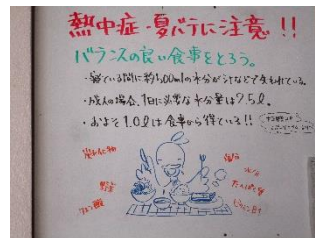 熱中症・夏バテに注意!!
バランスの良い食事をとろう。
・寝ている間に約500mlの水分が汗などで失われている。
・成人の場合、1日に必要な水分量は2.5ℓ。
・およそ1.0ℓは食事から得ている!!
炭水化物
塩分
水分
たんぱく質